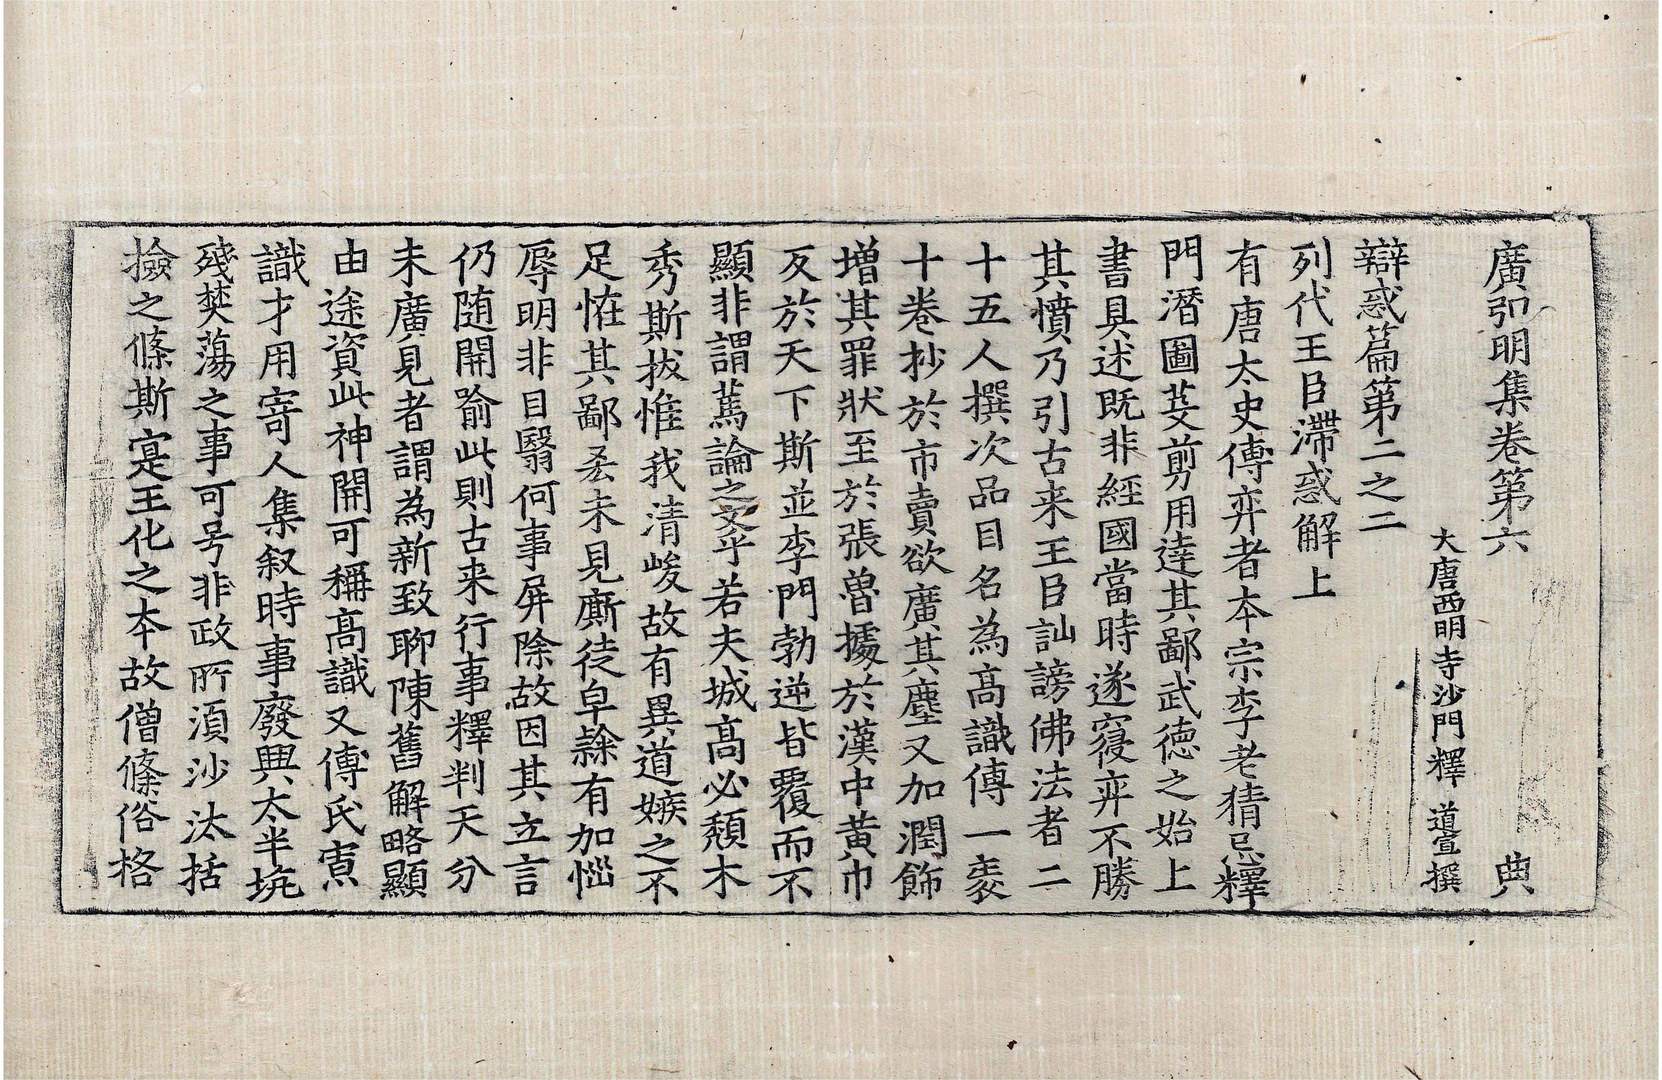 廣弘明集卷第六 典
大唐西明寺沙門釋道宣撰
辯惑篇第二之二
列代王臣滯惑解上
有唐太史傅弈者本宗李老猜忌釋
門潛圖芟剪用達其鄙武德之始上
書具述既非經國當時遂寢弈不勝
其憤乃引古来王臣訕謗佛法者二
十五人撰次品目名為高識傳一袠
十卷抄於市賣欲廣其塵又加潤飾
增其罪狀至於張魯據於漢中黃巾
反於天下斯並李門勃逆皆覆而不
顯非謂蔿論之文乎若夫城高必頹木
秀斯拔惟我清峻故有異道嫉之不
足恠其鄙丞未見廝徒皁隸有加惱
辱明非目翳何事屏除故因其立言
仍随開喻此則古来行事釋判天分
未廣見者謂為新致聊陳舊解略顯
由途資此神開可稱高識又傅氏寡
識才用寄人集叙時事廢興太半坑
殘焚蕩之事可号非政所須沙汰括
撿之條斯寔王化之本故僧條俗格